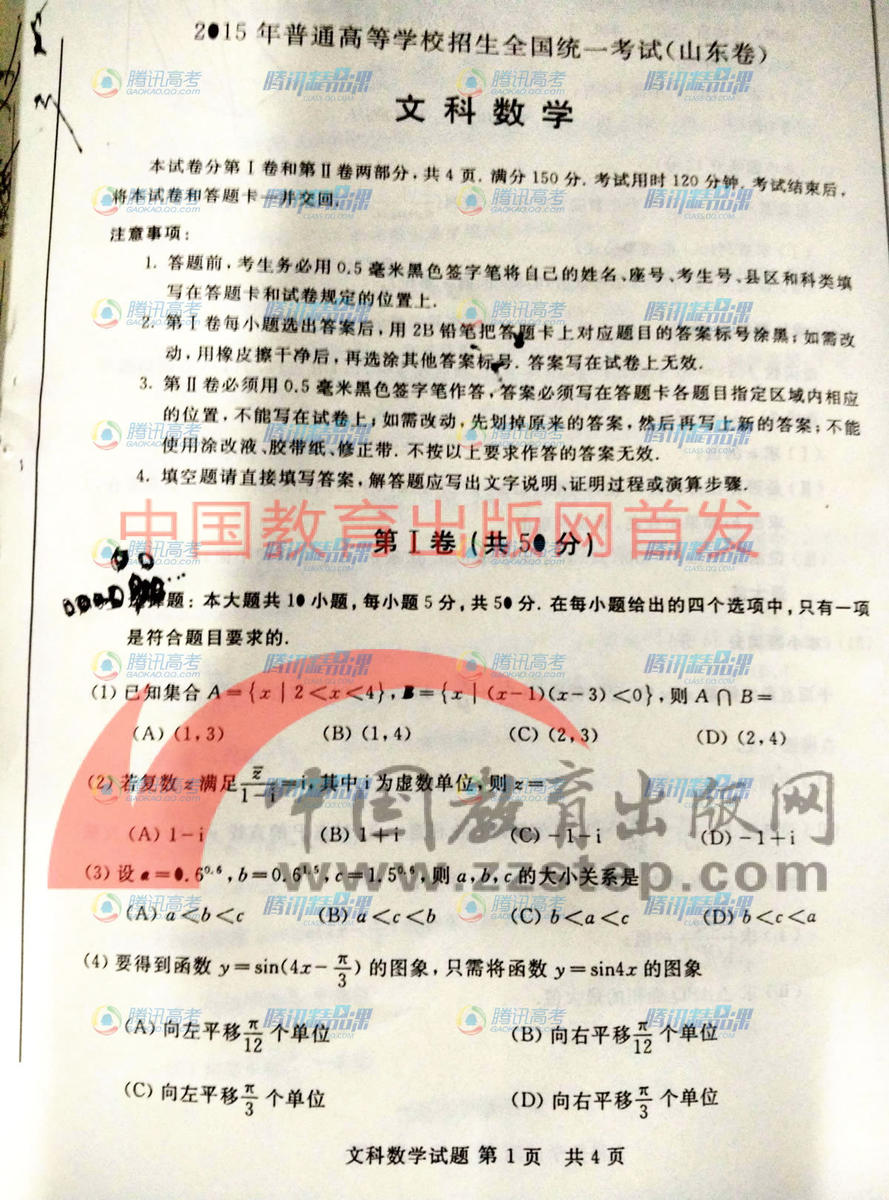 2015年普通高等学校招生全国统一考试(山东卷)
文科数学
本试卷分第Ⅰ卷和第Ⅱ卷两部分,共4页.满分150分.考试用时120分钟.考试结束后,
将本试卷和答题卡一并交回.
注意事项:
1. 答题前,考生务必用0.5毫米黑色签字笔将自己的姓名、座号、考生号、县区和科类填
写在答题卡和试卷规定的位置上.
2. 第Ⅰ卷每小题选出答案后,用2B铅笔把答题卡上对应题目的答案标号涂黑;如需改
动,用橡皮擦干净后,再选涂其他答案标号.答案写在试卷上无效.
3. 第Ⅱ卷必须用0.5毫米黑色签字笔作答,答案必须写在答题卡各题目指定区域内相应
的位置,不能写在试卷上;如需改动,先划掉原来的答案,然后再写上新的答案;不能
使用涂改液、胶带纸、修正带.不按以上要求作答的答案无效.
4. 填空题请直接填写答案,解答题应写出文字说明、证明过程或演算步骤.
中国教育出版网首发
第Ⅰ卷(共50分)
题:本大题共10小题,每小题5分,共50分.在每小题给出的四个选项中,只有一项
是符合题目要求的.
(1) 已知集合A={x|2<x<4},B={x|(x-1)(x-3)<0},则A∩B=
(A) (1,3) (B) (1,4) (C) (2,3) (D) (2,4)
(2) 若复数z满足z̄/(1-i)=i,其中i为虚数单位,则z=
(A) 1-i (B) 1+i (C) -1-i (D) -1+i
中国教育出版网
www.zzstep.com
(3) 设a=0.6^0.6,b=0.6^1.5,c=1.5^0.6,则a,b,c的大小关系是
(A) a<b<c (B) a<c<b (C) b<a<c (D) b<c<a
(4) 要得到函数y=sin(4x-π/3)的图象,只需将函数y=sin4x的图象
(A) 向左平移π/12个单位 (B) 向右平移π/12个单位
(C) 向左平移π/3个单位 (D) 向右平移π/3个单位
文科数学试题 第1页 共4页
腾讯高考
GAOKAO.QQ.COM
腾讯精品课
CLASS.QQ.COM